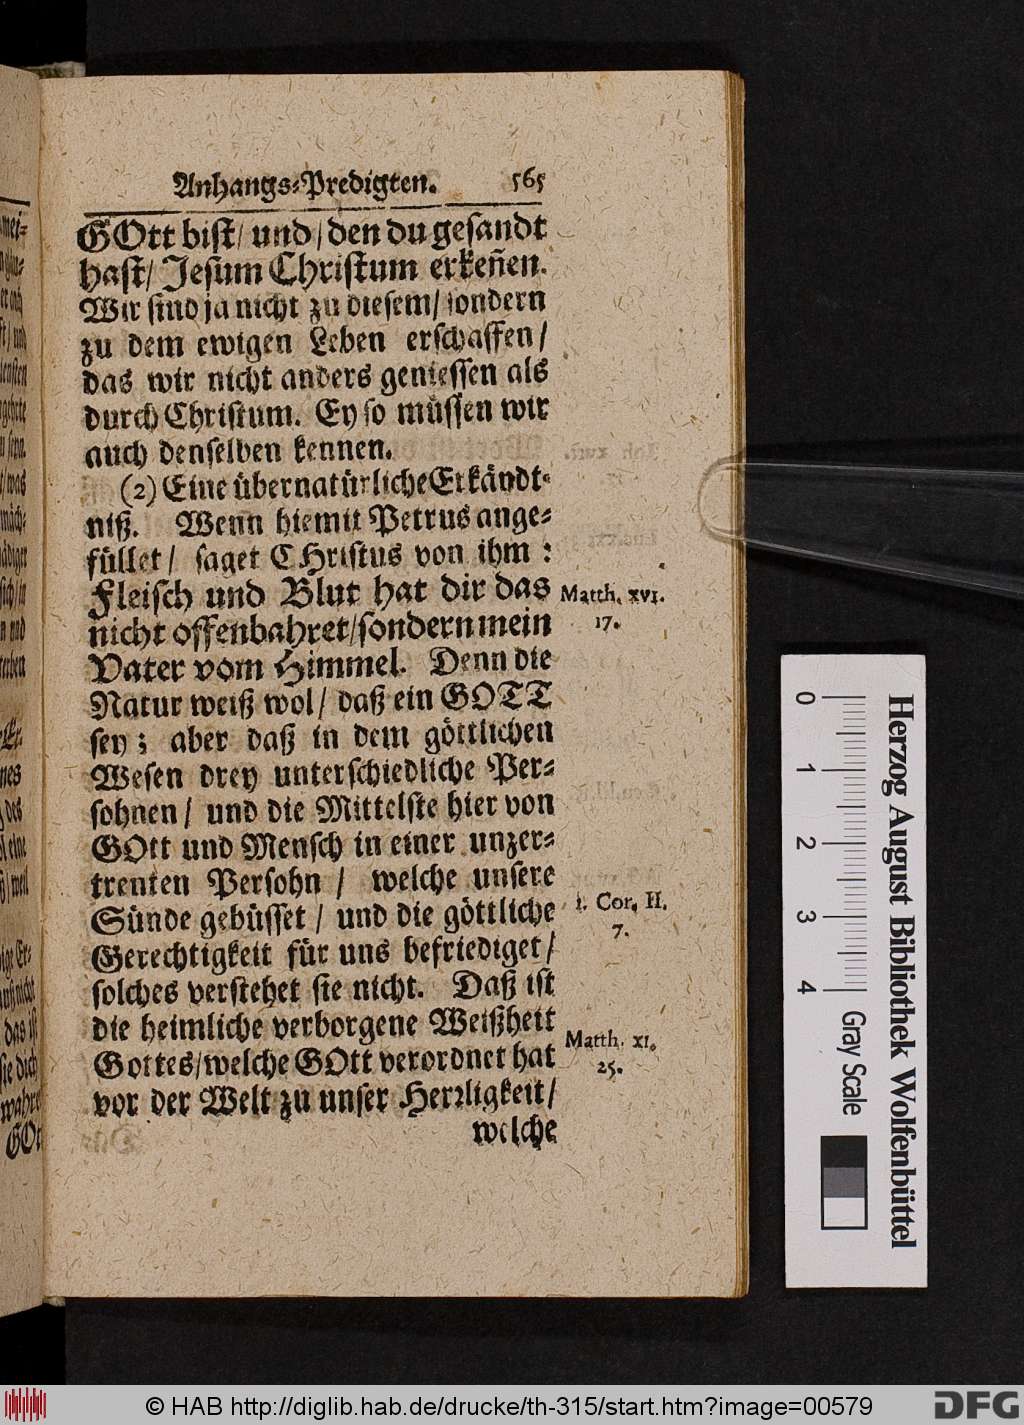 Anhangs-Predigten. 565
GOtt bist/ und/ den du gesandt
hast/ Jesum Christum erkeñen.
Wir sind ja nicht zu diesem/ sondern
zu dem ewigen Leben erschaffen/
das wir nicht anders geniessen als
durch Christum. Ey so müssen wir
auch denselben kennen.
(2) Eine übernatürliche Erkändt-
niß. Wenn hiemit Petrus ange-
füllet/ saget CHristus von ihm:
Fleisch und Blut hat dir das
nicht offenbahret/ sondern mein
Vater vom Himmel. Denn die
Natur weiß wol/ daß ein GOTT
sey; aber daß in dem göttlichen
Wesen drey unterschiedliche Per-
sohnen/ und die Mittelste hier von
GOtt und Mensch in einer unzer-
trenten Persohn/ welche unsere
Sünde gebüsset/ und die göttliche
Gerechtigkeit für uns befriediget/
solches verstehet sie nicht. Daß ist
die heimliche verborgene Weißheit
Gottes/ welche GOtt verordnet hat
vor der Welt zu unser Herrligkeit/
welche
Matth. XVI.
17.
1. Cor. II.
7.
Matth. XI.
25.
0 1 2 3 4
Gray Scale
Herzog August Bibliothek Wolfenbüttel
© HAB http://diglib.hab.de/drucke/th-315/start.htm?image=00579
DFG